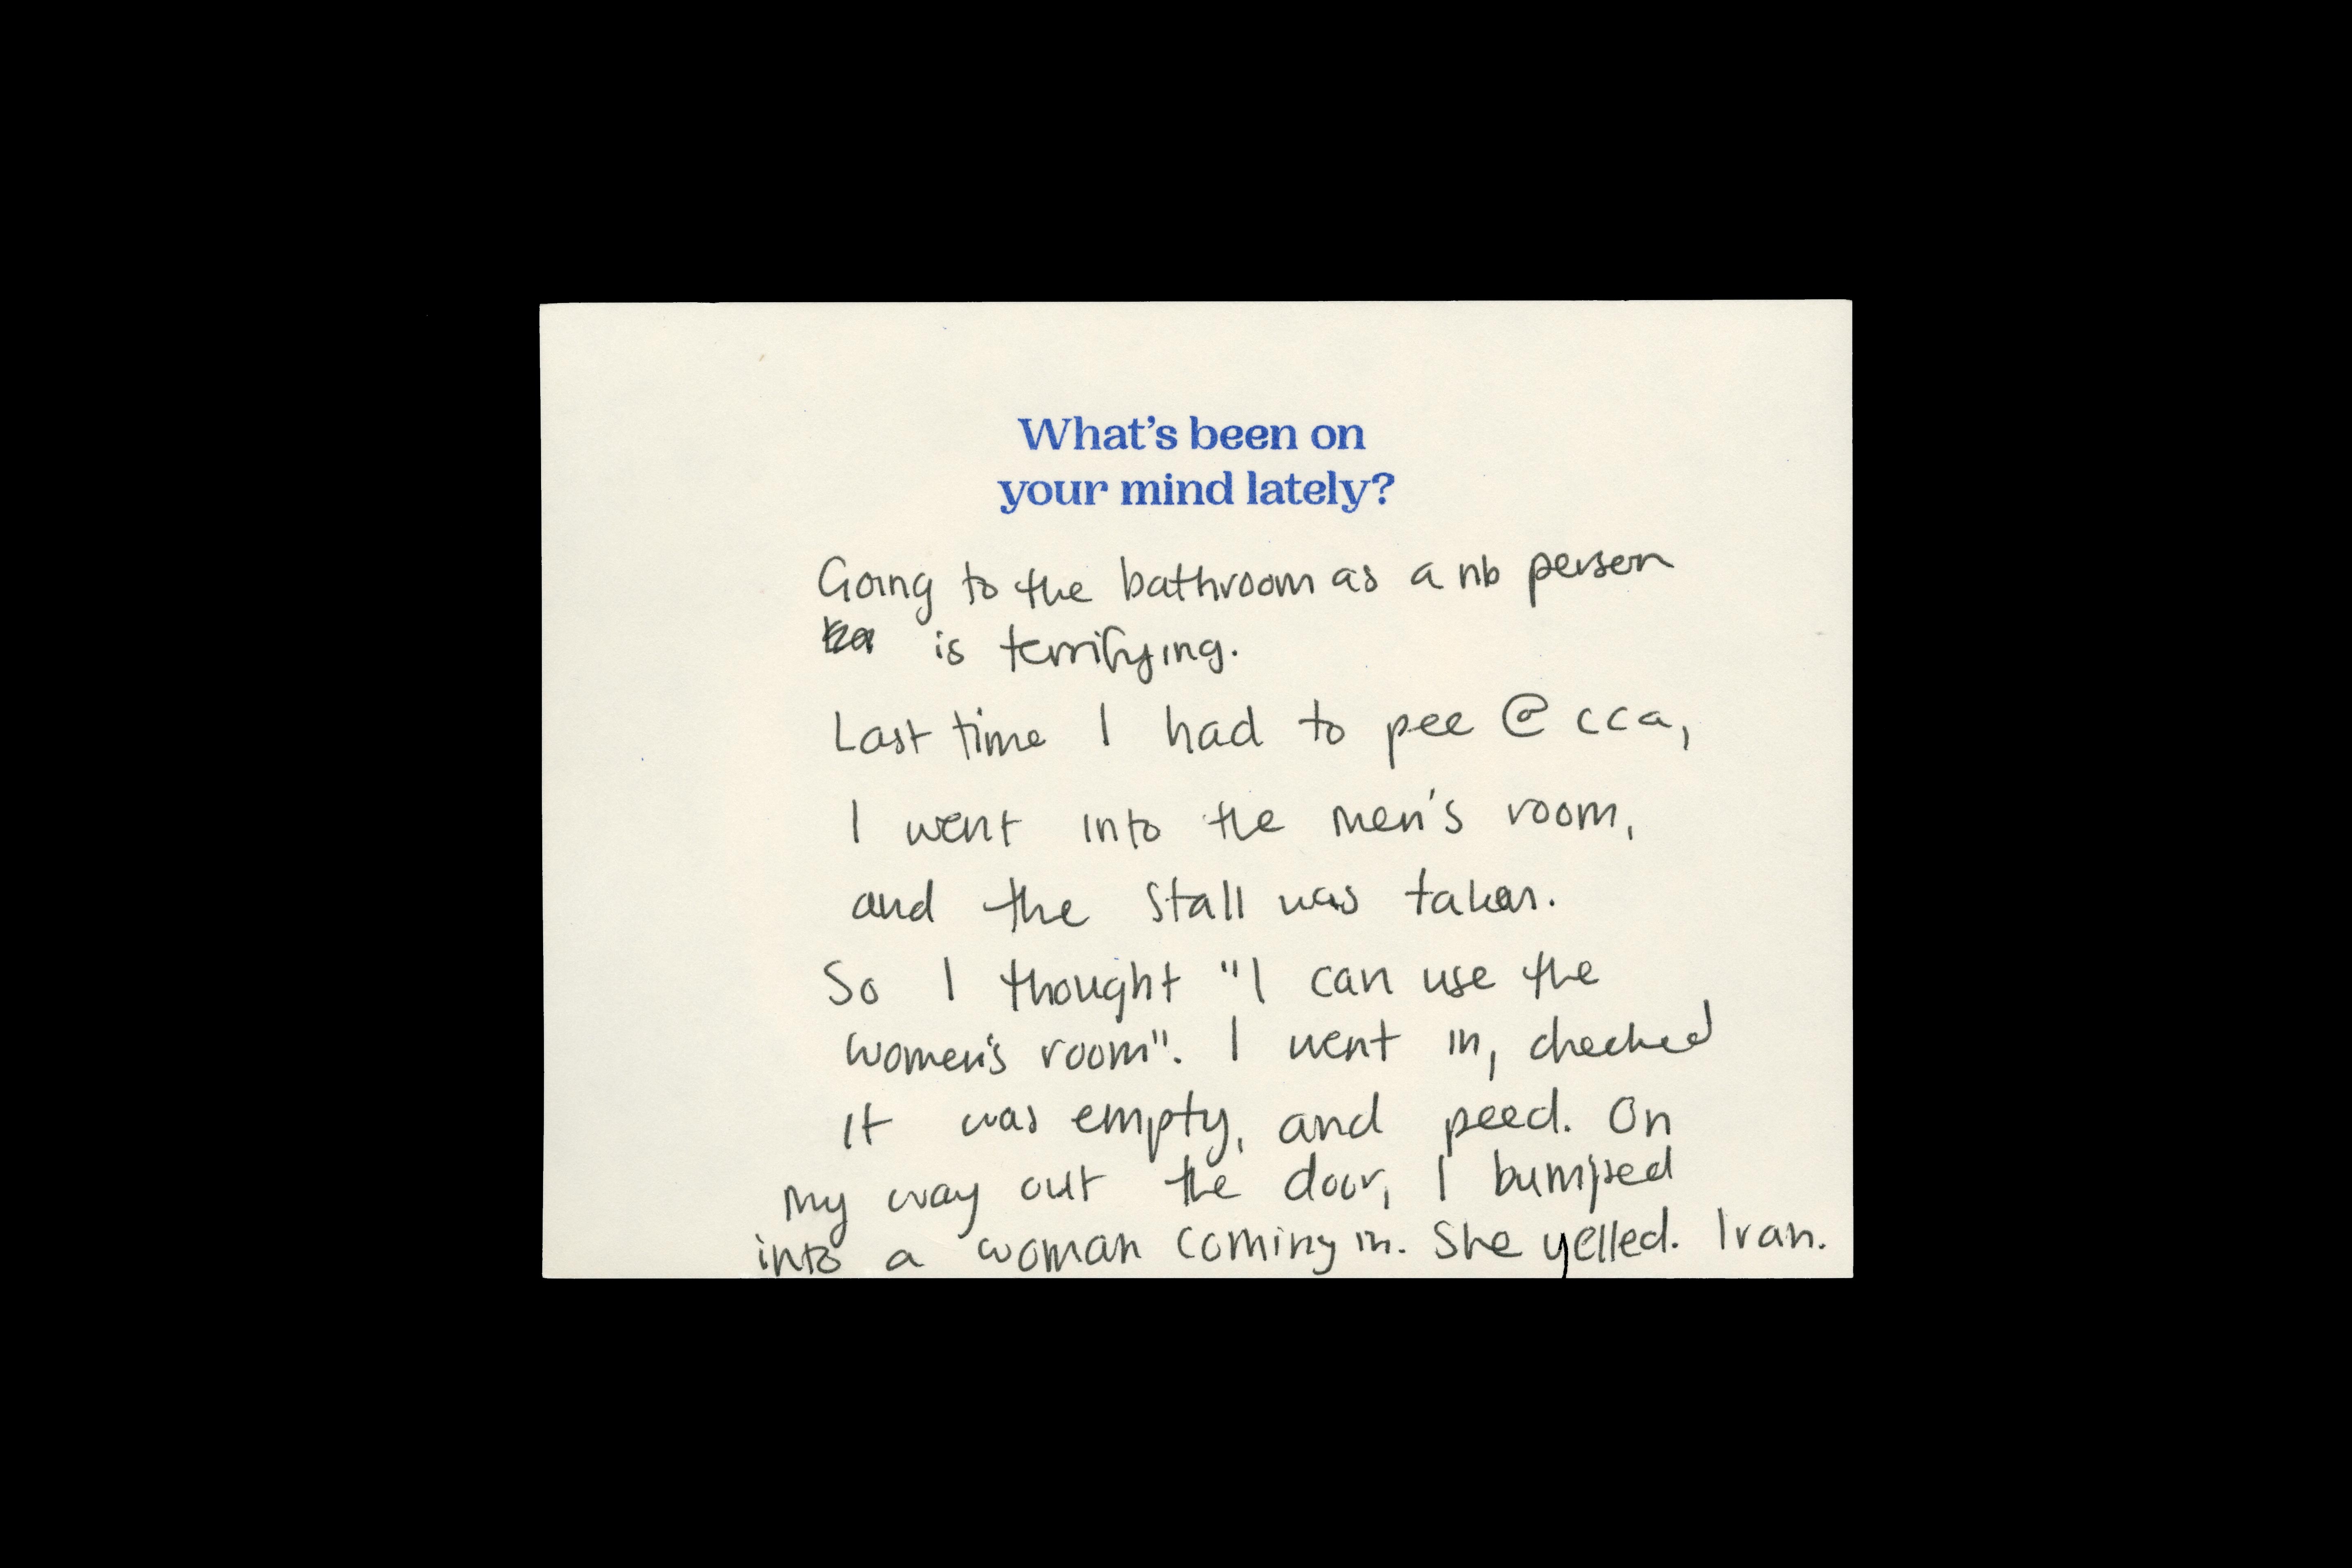 What's been on
your mind lately?
Going to the bathroom as a nb person
is terrifying.
Last time I had to pee @ cca,
I went into the men's room,
and the stall was taken.
So I thought "I can use the
women's room". I went in, checked
it was empty, and peed. On
my way out the door, I bumped
into a woman coming in. She yelled. I ran.